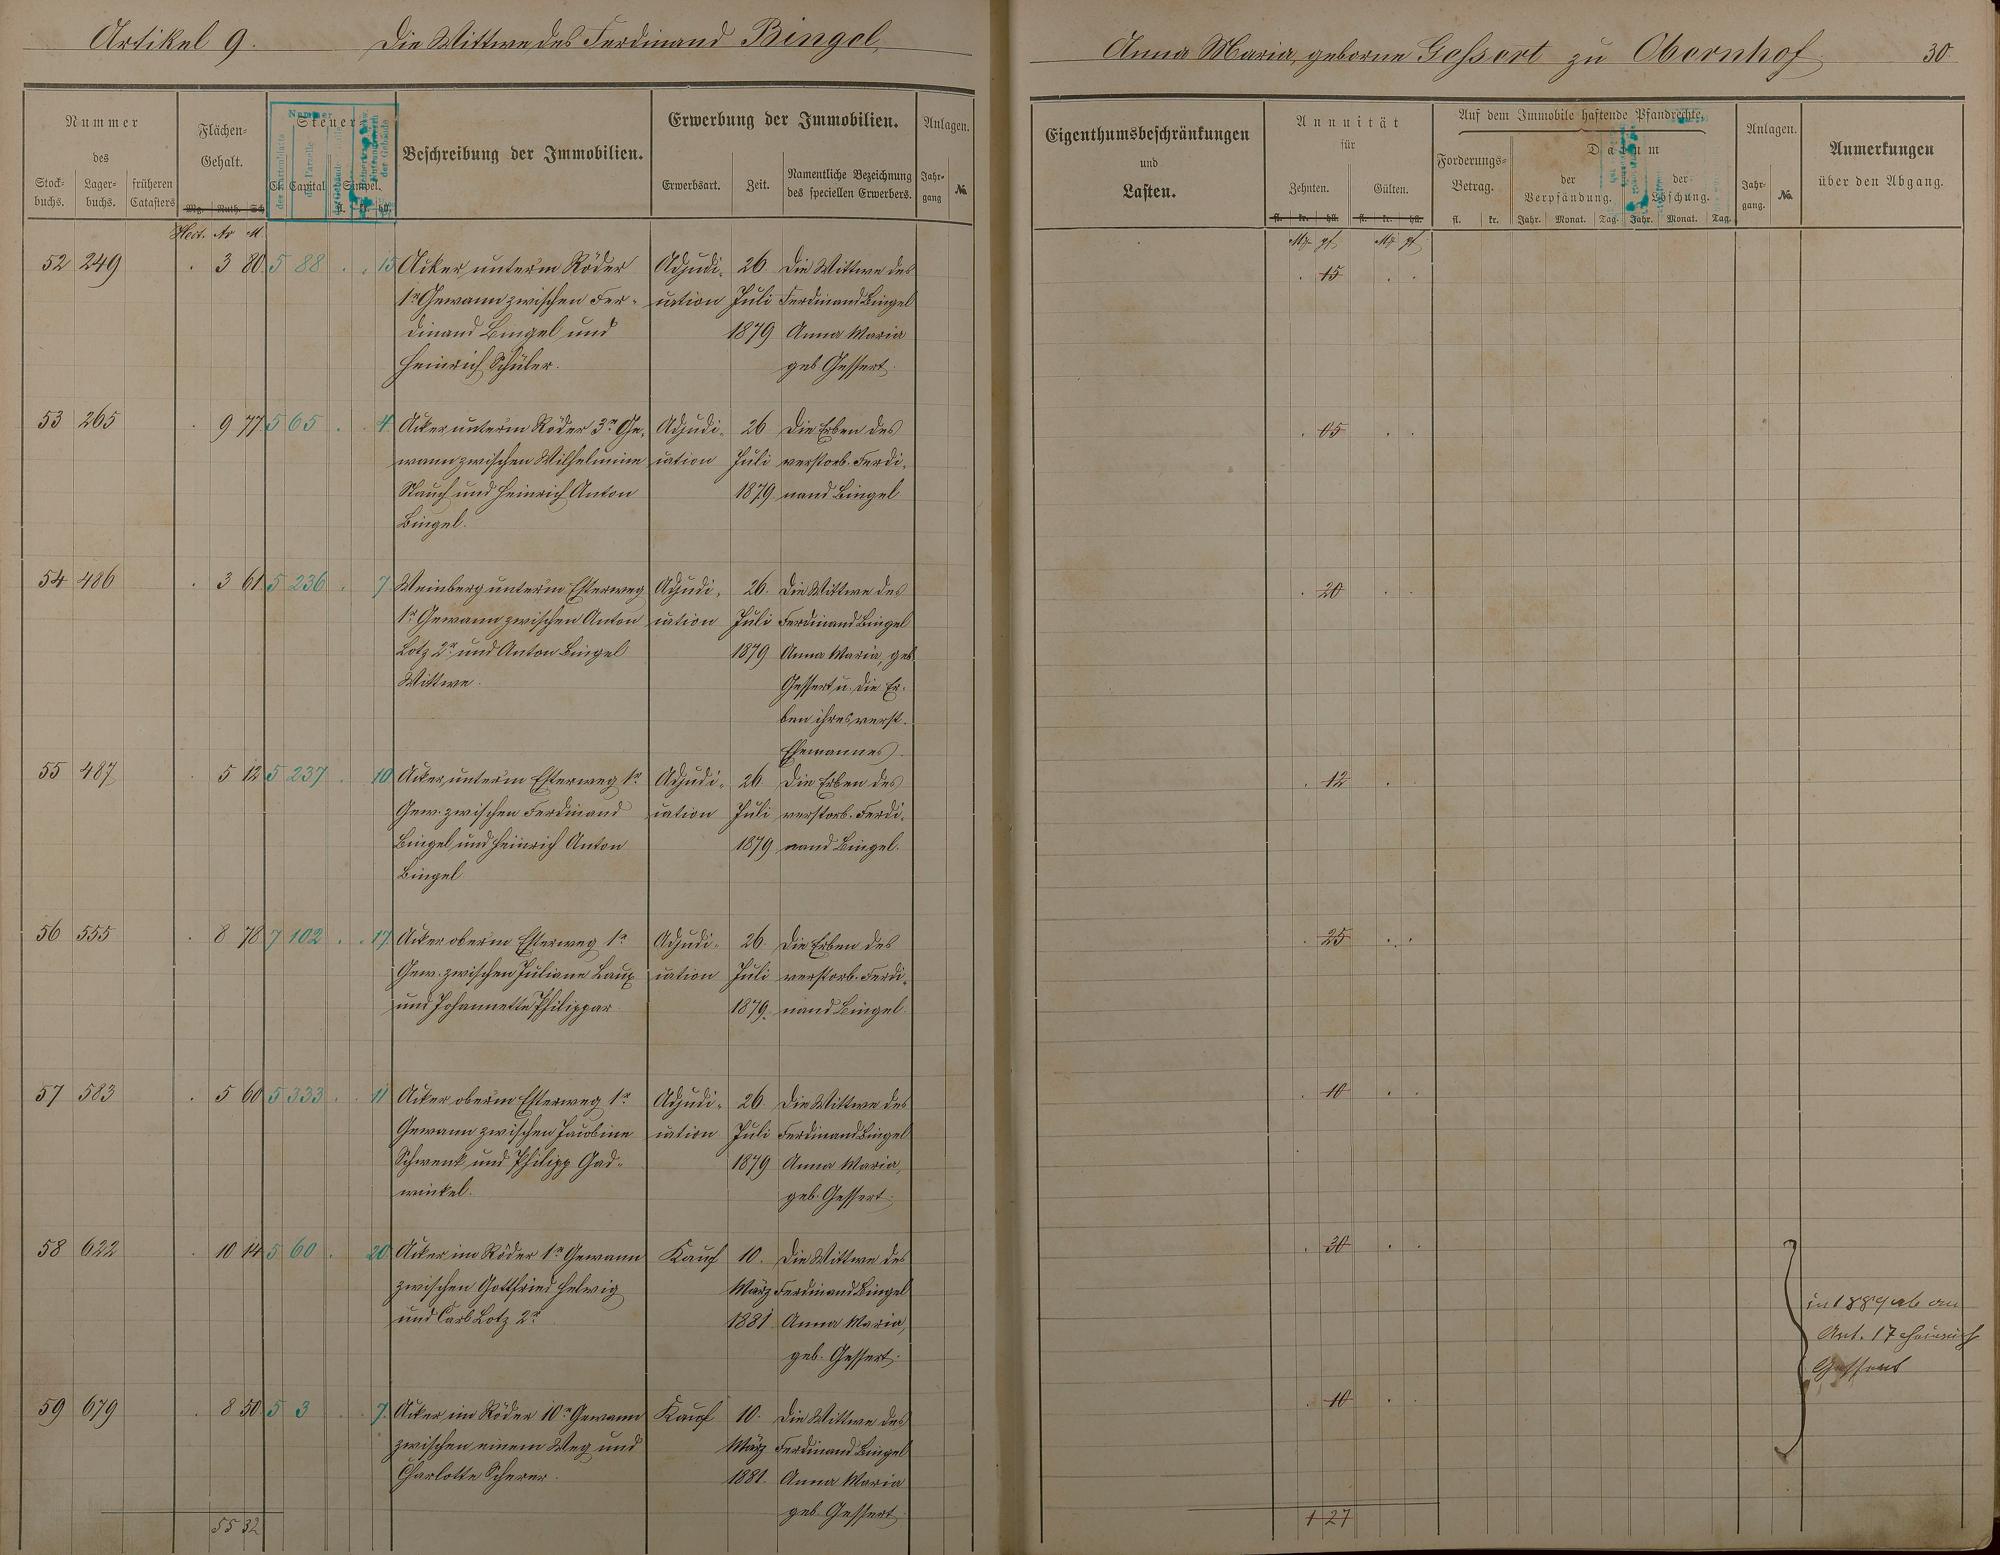 Artikel 9. Die Wittwe des Ferdinand Bingel,
Anna Maria, geborne Gessert zu Obernhof. 30.
Nummer
des
Stock-
buchs.
Lager-
buchs.
früheren
Catasters
Flächen-
Gehalt.
Mg. Ruth. Sch.
Steuer-
Cl. Capital Simpel.
fl. kr. hll.
Nummer
des Kartenblatts
der Parzelle
Beschreibung der Immobilien.
Erwerbung der Immobilien.
Erwerbsart.
Zeit.
Namentliche Bezeichnung
des speciellen Erwerbers.
Anlagen.
Jahr-
gang
No.
Eigenthumsbeschränkungen
und
Lasten.
Annuität
für
Zehnten. Gülten.
fl. kr. hll. fl. kr. hll.
Auf dem Immobile haftende Pfandrechte.
Forderungs-
Betrag.
fl. kr.
Datum
der
Verpfändung.
der
Löschung.
Jahr. Monat. Tag. Jahr. Monat. Tag.
Anlagen.
Jahr-
gang.
No.
Anmerkungen
über den Abgang.
Hect. Ar M.
Mk pf Mk pf
52 249 . 3 80 5 88 . . 15 Acker, unterm Röder Adjudi- 26 Die Wittwe des . 15 . .
1r Gewann zwischen Fer- cation Juli Ferdinand Bingel
dinand Bingel und 1879 Anna Maria
Heinrich Schüler. geb Gessert.
53 265 . 9 77 5 65 . . 4 Acker unterm Röder 3r Ge- Adjudi- 26 Die Erben des . 15 . .
wann zwischen Wilhelmine cation Juli verstorb. Ferdi-
Stauch und Heinrich Anton 1879. nand Bingel
Bingel.
54 486 . 3 61 5 236 . 7 Weinberg unterm Esterweg Adjudi- 26. Die Wittwe des . 20 . .
1r Gewann zwischen Anton cation Juli Ferdinand Bingel
Lotz 2r und Anton Bingel 1879 Anna Maria, geb
Wittwe. Gessert u. die Er-
ben ihres verst.
Ehemannes.
55 487 . 5 12 5 237 . 10 Acker, unterm Esterweg 1r Adjudi- 26 Die Erben des . 12 .
Gew. zwischen Ferdinand cation Juli verstorb. Ferdi-
Bingel und Heinrich Anton 1879 nand Bingel.
Bingel
56 555 . 8 78 7 102 . . 17 Acker oberm Esterweg 1r Adjudi- 26. Die Erben des . 25 . .
Gew. zwischen Juliane Laux cation Juli verstorb. Ferdi-
und Johannette Philippar 1879. nand Bingel.
57 583 . 5 60 5 333 . . 11 Acker oberm Esterweg 1r Adjudi- 26. Die Wittwe des . 10 . .
Gewann zwischen Jacobine cation Juli Ferdinand Bingel
Schwenk und Philipp Gad- 1879 Anna Maria,
winkel. geb. Gessert.
58 622 . 10 14 5 60 . 20 Acker im Röder 1r Gewann Kauf 10. Die Wittwe des . 30 . .
zwischen Gottfried Helwig März Ferdinand Bingel
und Carl Lotz 2r 1881. Anna Maria,
geb. Gessert.
in 1889 ab an
Art. 17 Heinrich
Gessert
59 679 . 8 50 5 3 . . 7 Acker, im Röder 10r Gewann Kauf 10. Die Wittwe des . 10 . .
zwischen einem Weg und März Ferdinand Bingel
Charlotte Scherer. 1881. Anna Maria
geb. Gessert.
55 32
1 27